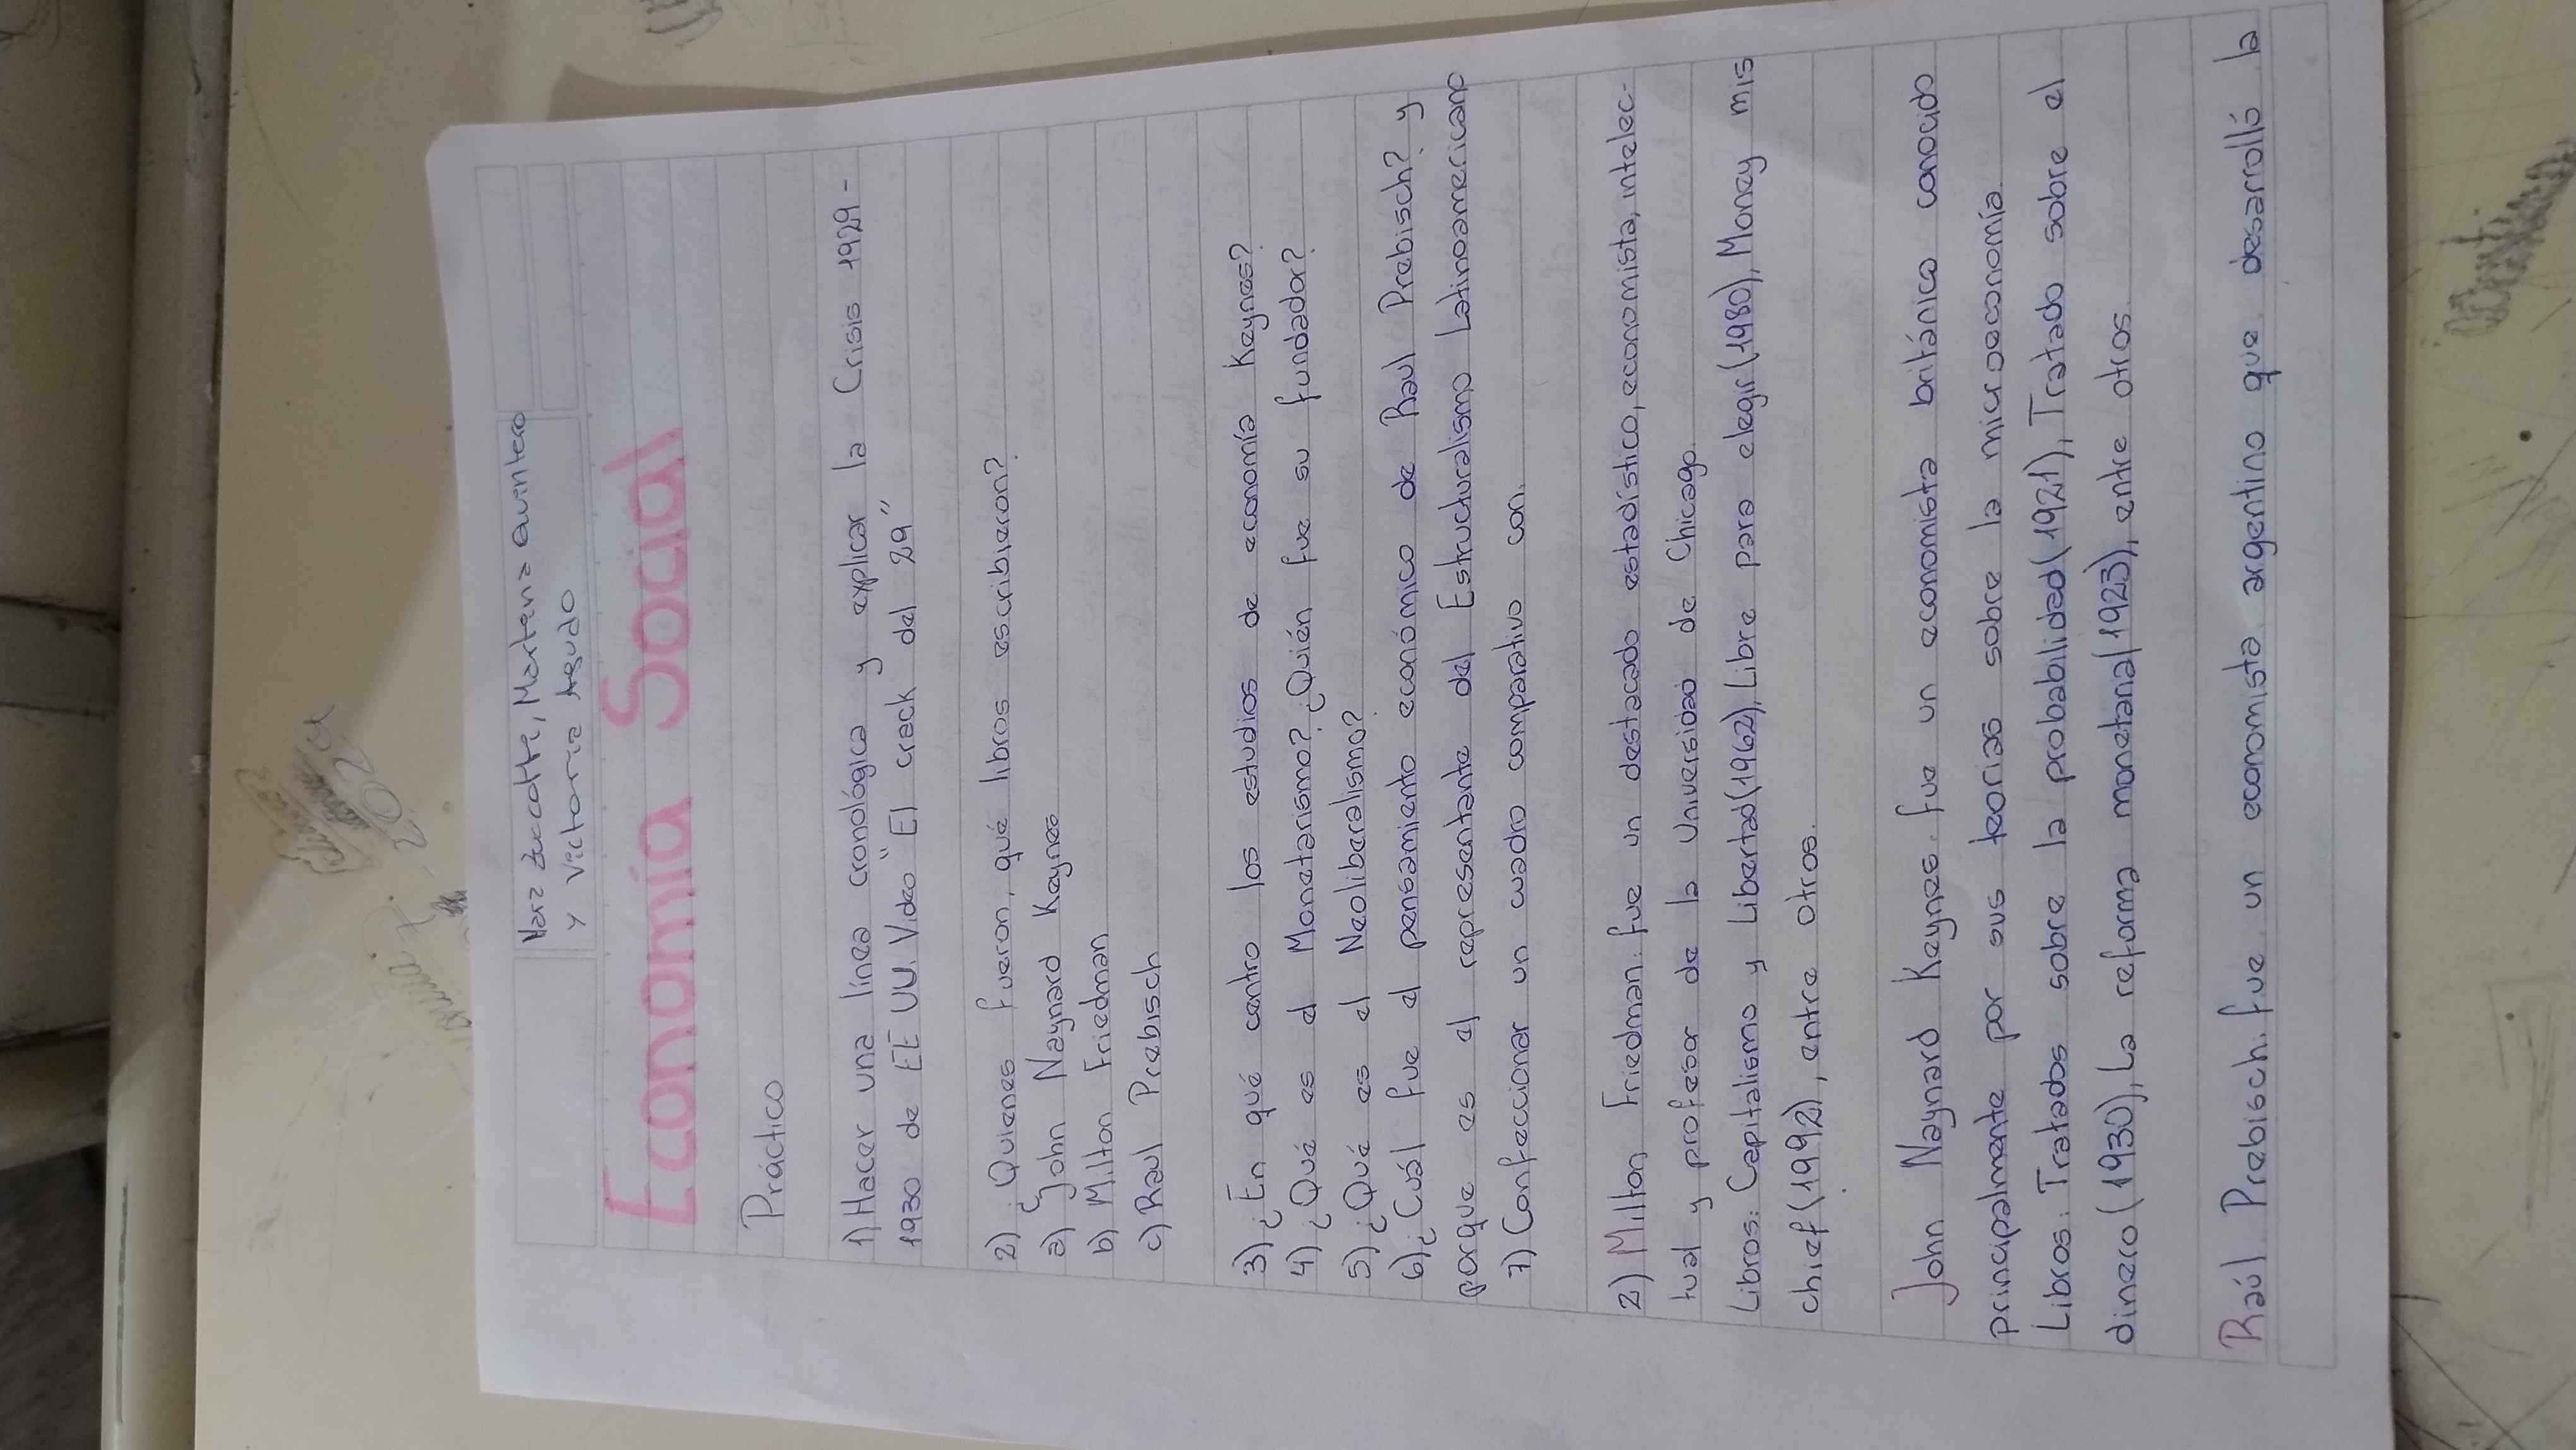 Mara Zuccotti, Martena Quintero
y Victoria Agudo
Economía Social
Práctico
1) Hacer una línea cronológica y explicar la Crisis 1929-
1930 de EE UU. Video "El crack del 29"
2) ¿Quienes fueron, qué libros escribieron?
a) John Naynard Keynes
b) Milton Friedman
c) Raul Prebisch
3) ¿En qué centro los estudios de economía Keynes?
4) ¿Qué es el Monetarismo? ¿Quién fue su fundador?
5) ¿Qué es el Neoliberalismo?
6) ¿Cuál fue el pensamiento económico de Raul Prebisch? y
porque es el representante del Estructuralismo Latinoamericano
7) Confeccionar un cuadro comparativo con.
2) Milton Friedman: fue un destacado estadístico, economista, intelec-
tual y profesor de la Universidad de Chicago.
Libros: Capitalismo y Libertad (1962), Libre para elegir (1980), Money mis
chief (1992), entre otros.
John Naynard Keynes: fue un economista británico conocido
principalmente por sus teorias sobre la microeconomía.
Libros: Tratados sobre la probabilidad (1921), Tratado sobre el
dinero (1930), La reforma monetaria (1923), entre otros.
Raúl Prebisch: fue un economista argentino que desarrolló la